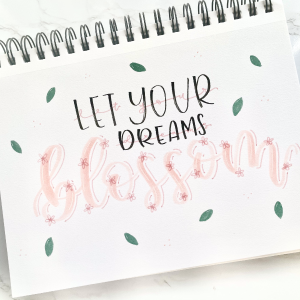 LET YOUR
DREAMS
blossom